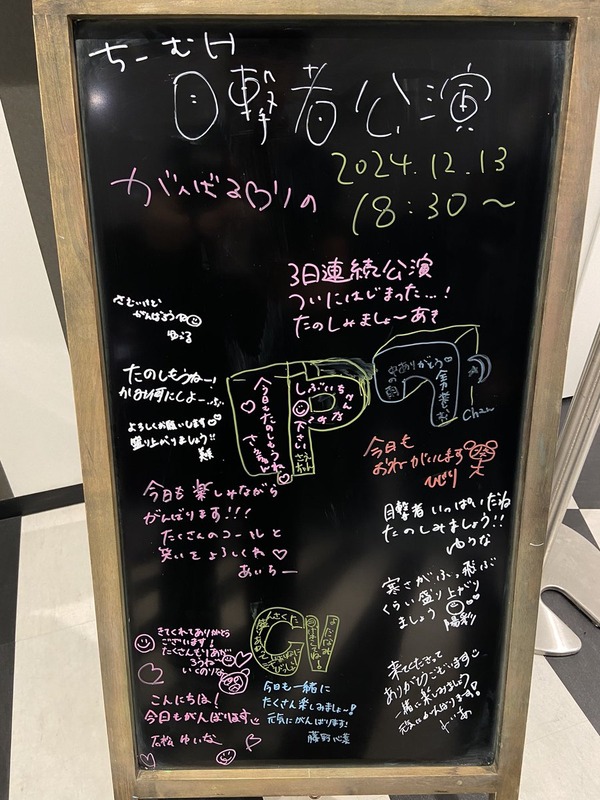 ちーむH
目撃者公演
2024.12.13
18:30～
がんばる♡りの
3日連続公演
ついにはじまった…!
たのしみましょ～あき
さむいけど
がんばろうね
ゆうる
たのしもうねー!
かお何にしよー
よろしくお願いします
盛り上がりましょう!!
今日もたのしもうね
ありがとう♡
Chan
今日も
おねがいします
ひびり
今日も楽しみながら
がんばります!!!
たくさんのコールと
笑いをよろしくね♡
あいちー
目撃者いっぱいだね
たのしみましょう!!
ゆうな
寒さがふっ飛ぶ
くらい盛り上がり
ましょう
陽彩
きてくれてありがとう
ございます!
たくさんもりあがろうねー
いくのりな
今日も一緒に
たくさん楽しみましょ～!
元気にがんばります!
藤野心葉
こんにちは!
今日もがんばります
石松ゆいな
来てくださって
ありがとうございます
一緒に楽しみましょう!
元気にがんばります!